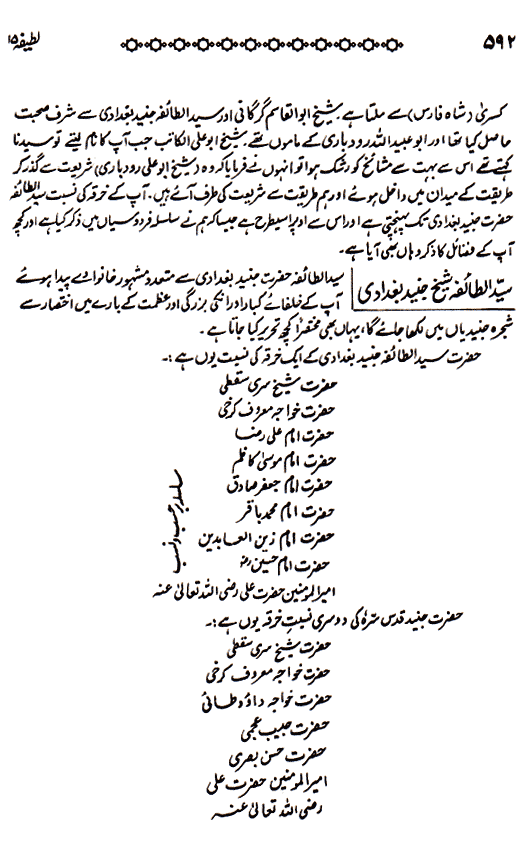 ۵۹۲
لطیفہ ۱۵
کسریٰ (شاہ فارس) سے ملتا ہے۔ شیخ ابوالقاسم گرگانی اور سید الطائفہ جنید بغدادی سے شرف صحبت
حاصل کیا تھا اور ابو عبید اللہ رودباری کے ماموں تھے۔ شیخ ابو علی الکاتب جب آپ کا نام لیتے تو سیدنا
کہتے تھے اس سے بہت سے مشائخ کو رشک ہوا تو انہوں نے فرمایا کہ وہ (شیخ ابو علی رودباری) شریعت سے گذر کر
طریقت کے میدان میں داخل ہوئے اور ہم طریقت سے شریعت کی طرف آئے ہیں۔ آپ کے خرقہ کی نسبت سید الطائفہ
حضرت جنید بغدادی تک پہنچتی ہے اور اس سے اوپر اسیطرح ہے جیسا کہ ہم نے سلسلہ فردوسیاں میں ذکر کیا ہے اور کچھ
آپ کے فضائل کا ذکر وہاں بھی آیا ہے۔
سید الطائفہ شیخ جنید بغدادی
سید الطائفہ حضرت جنید بغدادی سے متعدد مشہور خانوادے پیدا ہوئے
آپ کے خلفائے کبار اور انکی بزرگی اور عظمت کے بارے میں اختصار سے
شجرہ جنیدیاں میں لکھا جائے گا، یہاں بھی مختصراً کچھ تحریر کیا جاتا ہے۔
حضرت سید الطائفہ جنید بغدادی کے ایک خرقہ کی نسبت یوں ہے :۔
حضرت شیخ سری سقطی
حضرت خواجہ معروف کرخی
حضرت امام علی رضا
حضرت امام موسیٰ کاظم
حضرت امام جعفر صادق
حضرت امام محمد باقر
حضرت امام زین العابدین
حضرت امام حسین رض
امیر المومنین حضرت علی رضی اللہ تعالیٰ عنہ
سلسلہ بر حسب و نسب
حضرت جنید قدس سرہٗ کی دوسری نسبت خرقہ یوں ہے :۔
حضرت شیخ سری سقطی
حضرت خواجہ معروف کرخی
حضرت خواجہ داؤد طائی
حضرت حبیب عجمی
حضرت حسن بصری
امیر المومنین حضرت علی
رضی اللہ تعالیٰ عنہ